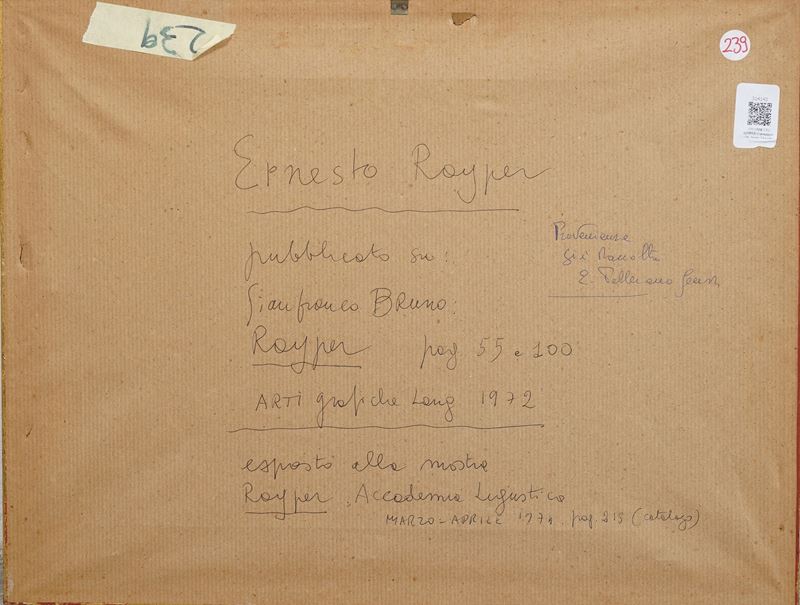 239
239
Ernesto Rayper
pubblicato su:
Gianfranco Bruno:
Rayper pag. 55 e 100
ARTI grafiche Lang 1972
esposto alla mostra
Rayper, Accademia Ligustica
MARZO-APRILE pag. 215 (catalogo)
Provenienza
già Raccolta
E.